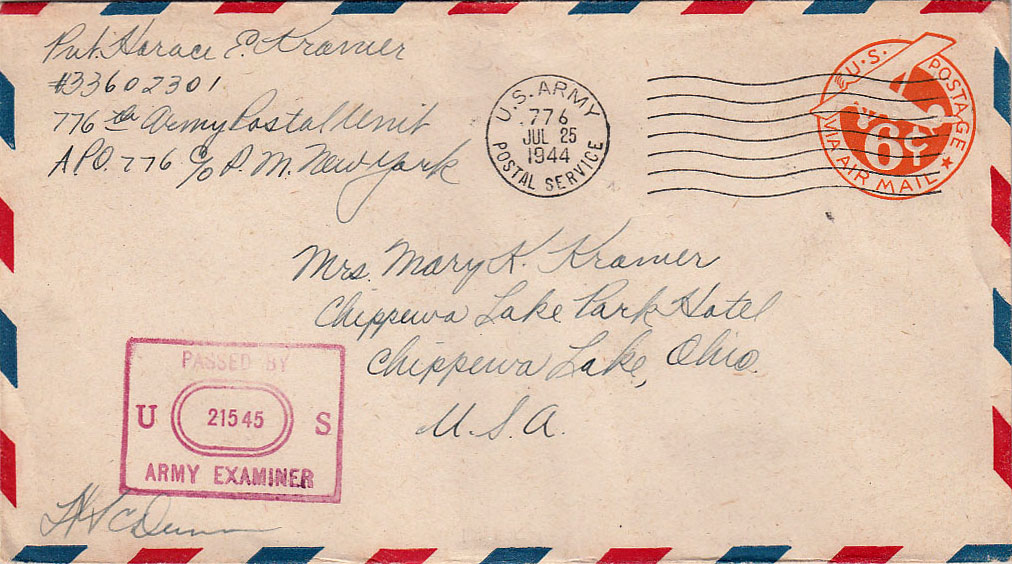 Pvt. Horace E. Kramer
#33602301
776th Army Postal Unit
A.P.O. 776 c/o P.M. New York
U.S. ARMY
776
JUL 25
1944
POSTAL SERVICE
U.S. POSTAGE
6¢
VIA AIR MAIL
Mrs. Mary K. Kramer
Chippewa Lake Park Hotel
Chippewa Lake, Ohio.
U.S.A.
PASSED BY
U 21545 S
ARMY EXAMINER